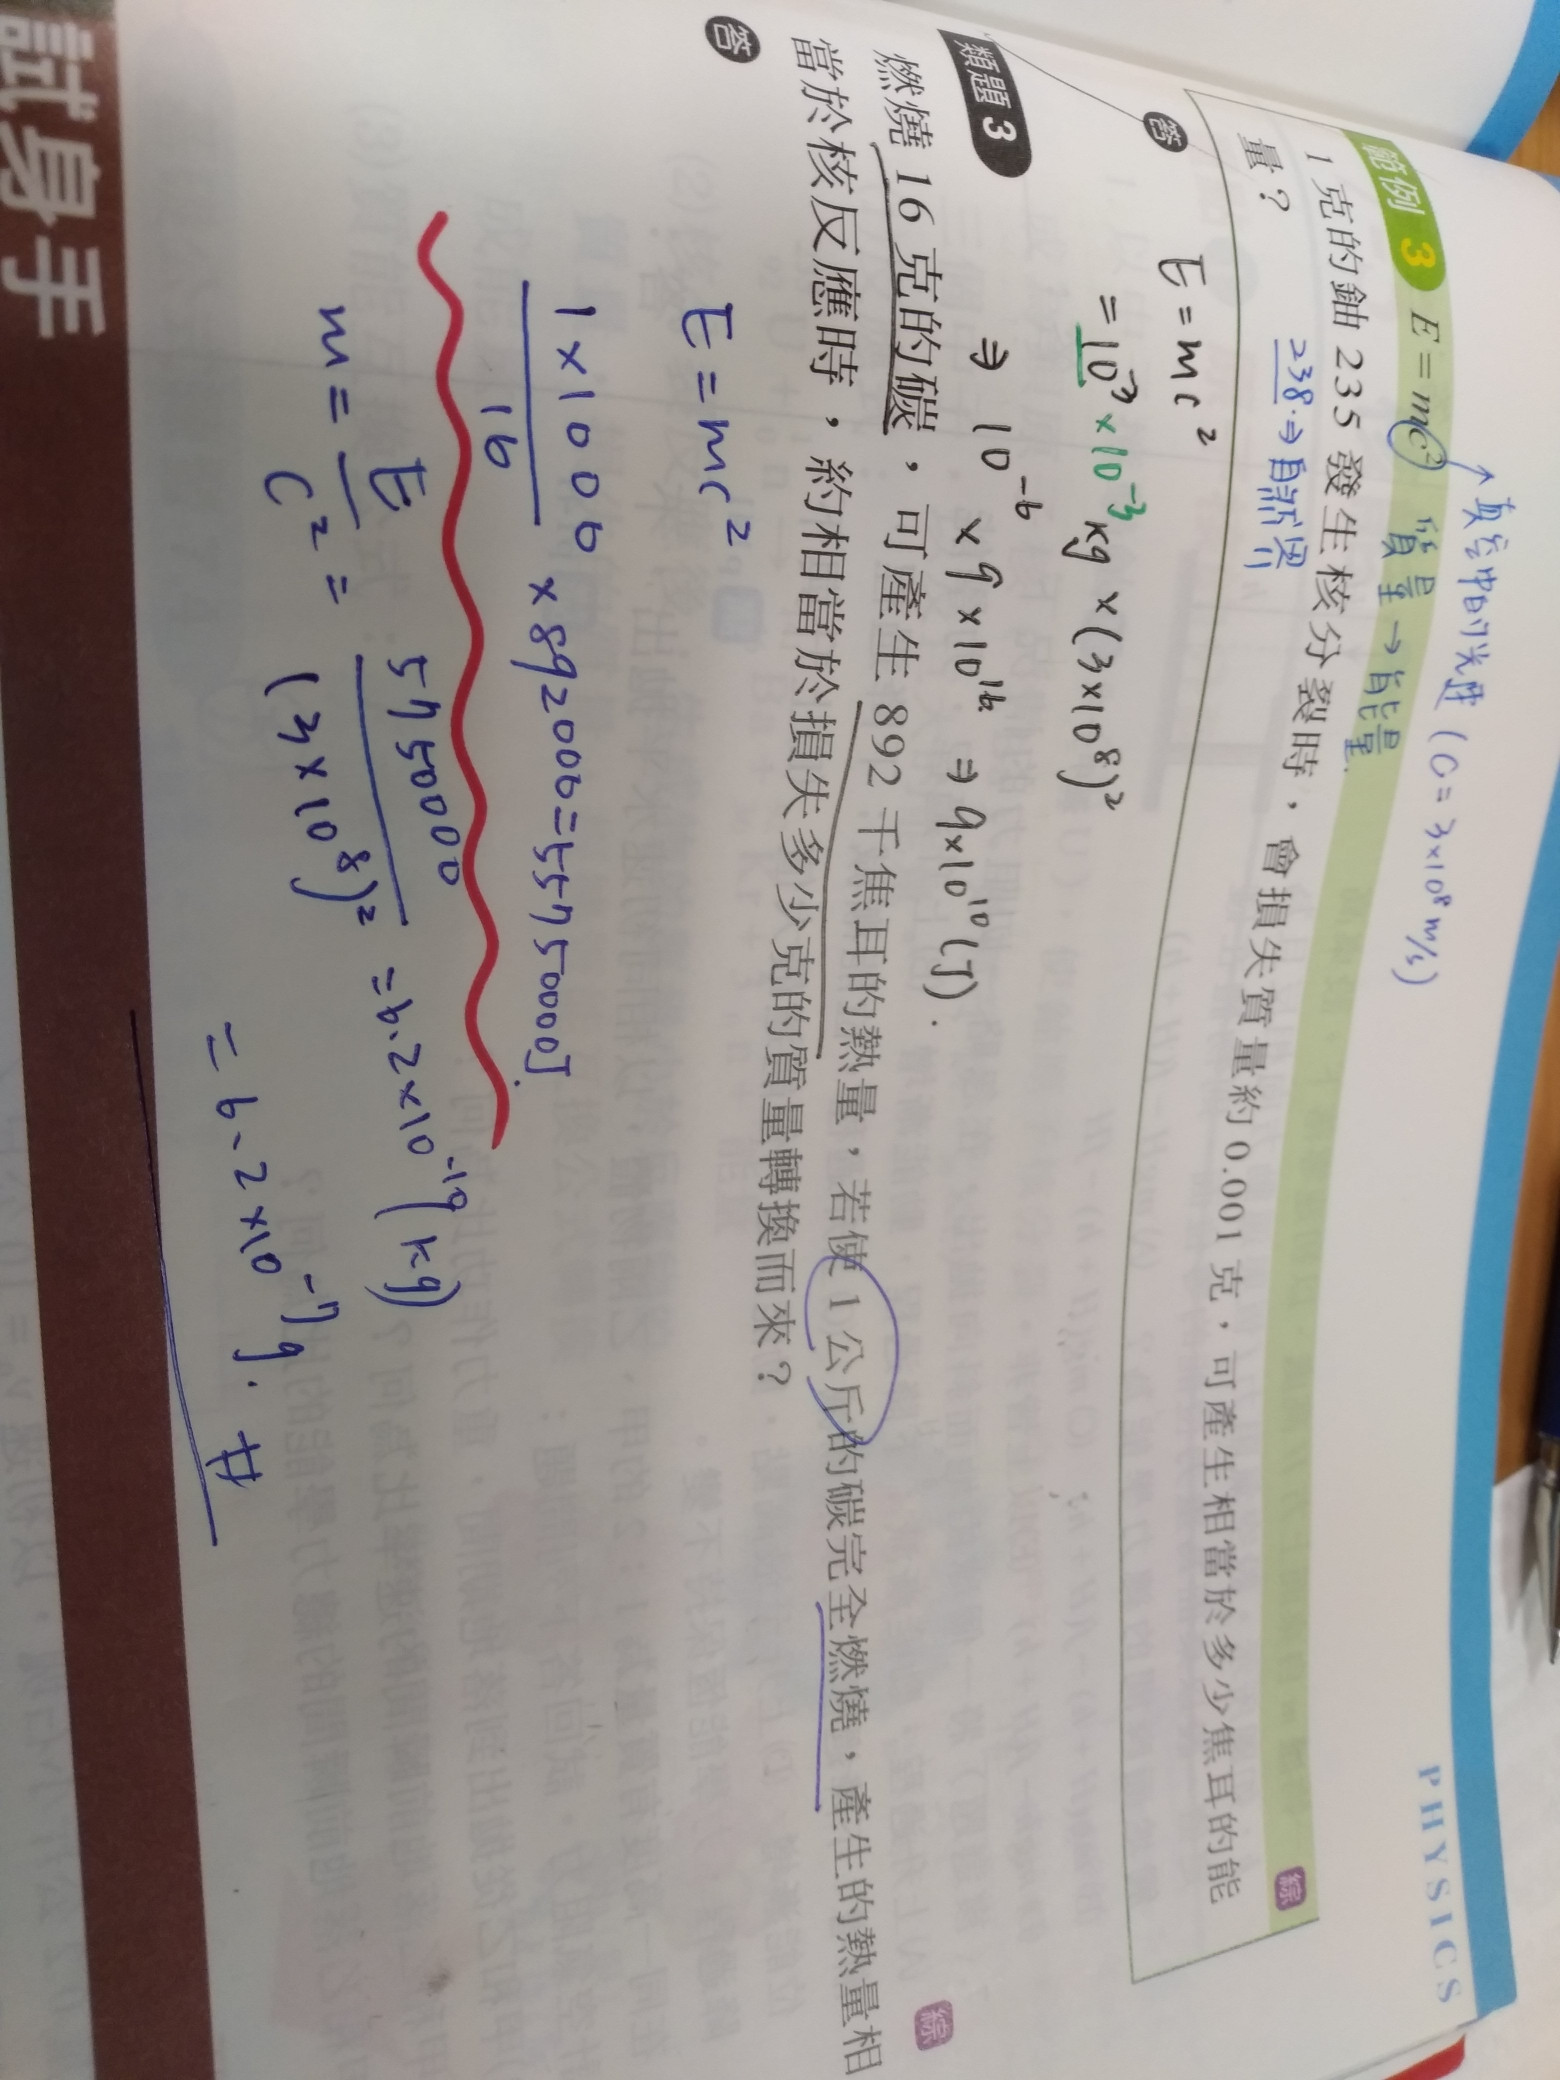 PHYSICS
↗真空中的光速 (C = 3×10⁸ m/s)
質量 → 能量
範例 3 E = mc²
綜
1 克的鈾 235 發生核分裂時，會損失質量約 0.001 克，可產生相當於多少焦耳的能
量？ 238 ⇒ 自然界
答
E = mc²
= 10⁻³ × 10⁻³ kg × (3×10⁸)²
⇒ 10⁻⁶ × 9 × 10¹⁶ ⇒ 9×10¹⁰ (J).
類題 3
綜
燃燒 16 克的碳，可產生 892 千焦耳的熱量，若使 1 公斤的碳完全燃燒，產生的熱量相
當於核反應時，約相當於損失多少克的質量轉換而來？
答
E = mc²
1×1000
16
×892000=55750000J.
m = E/C² = 5750000/(3×10⁸)² = 6.2×10⁻¹⁰ (kg)
= 6.2×10⁻⁷g. #
試身手